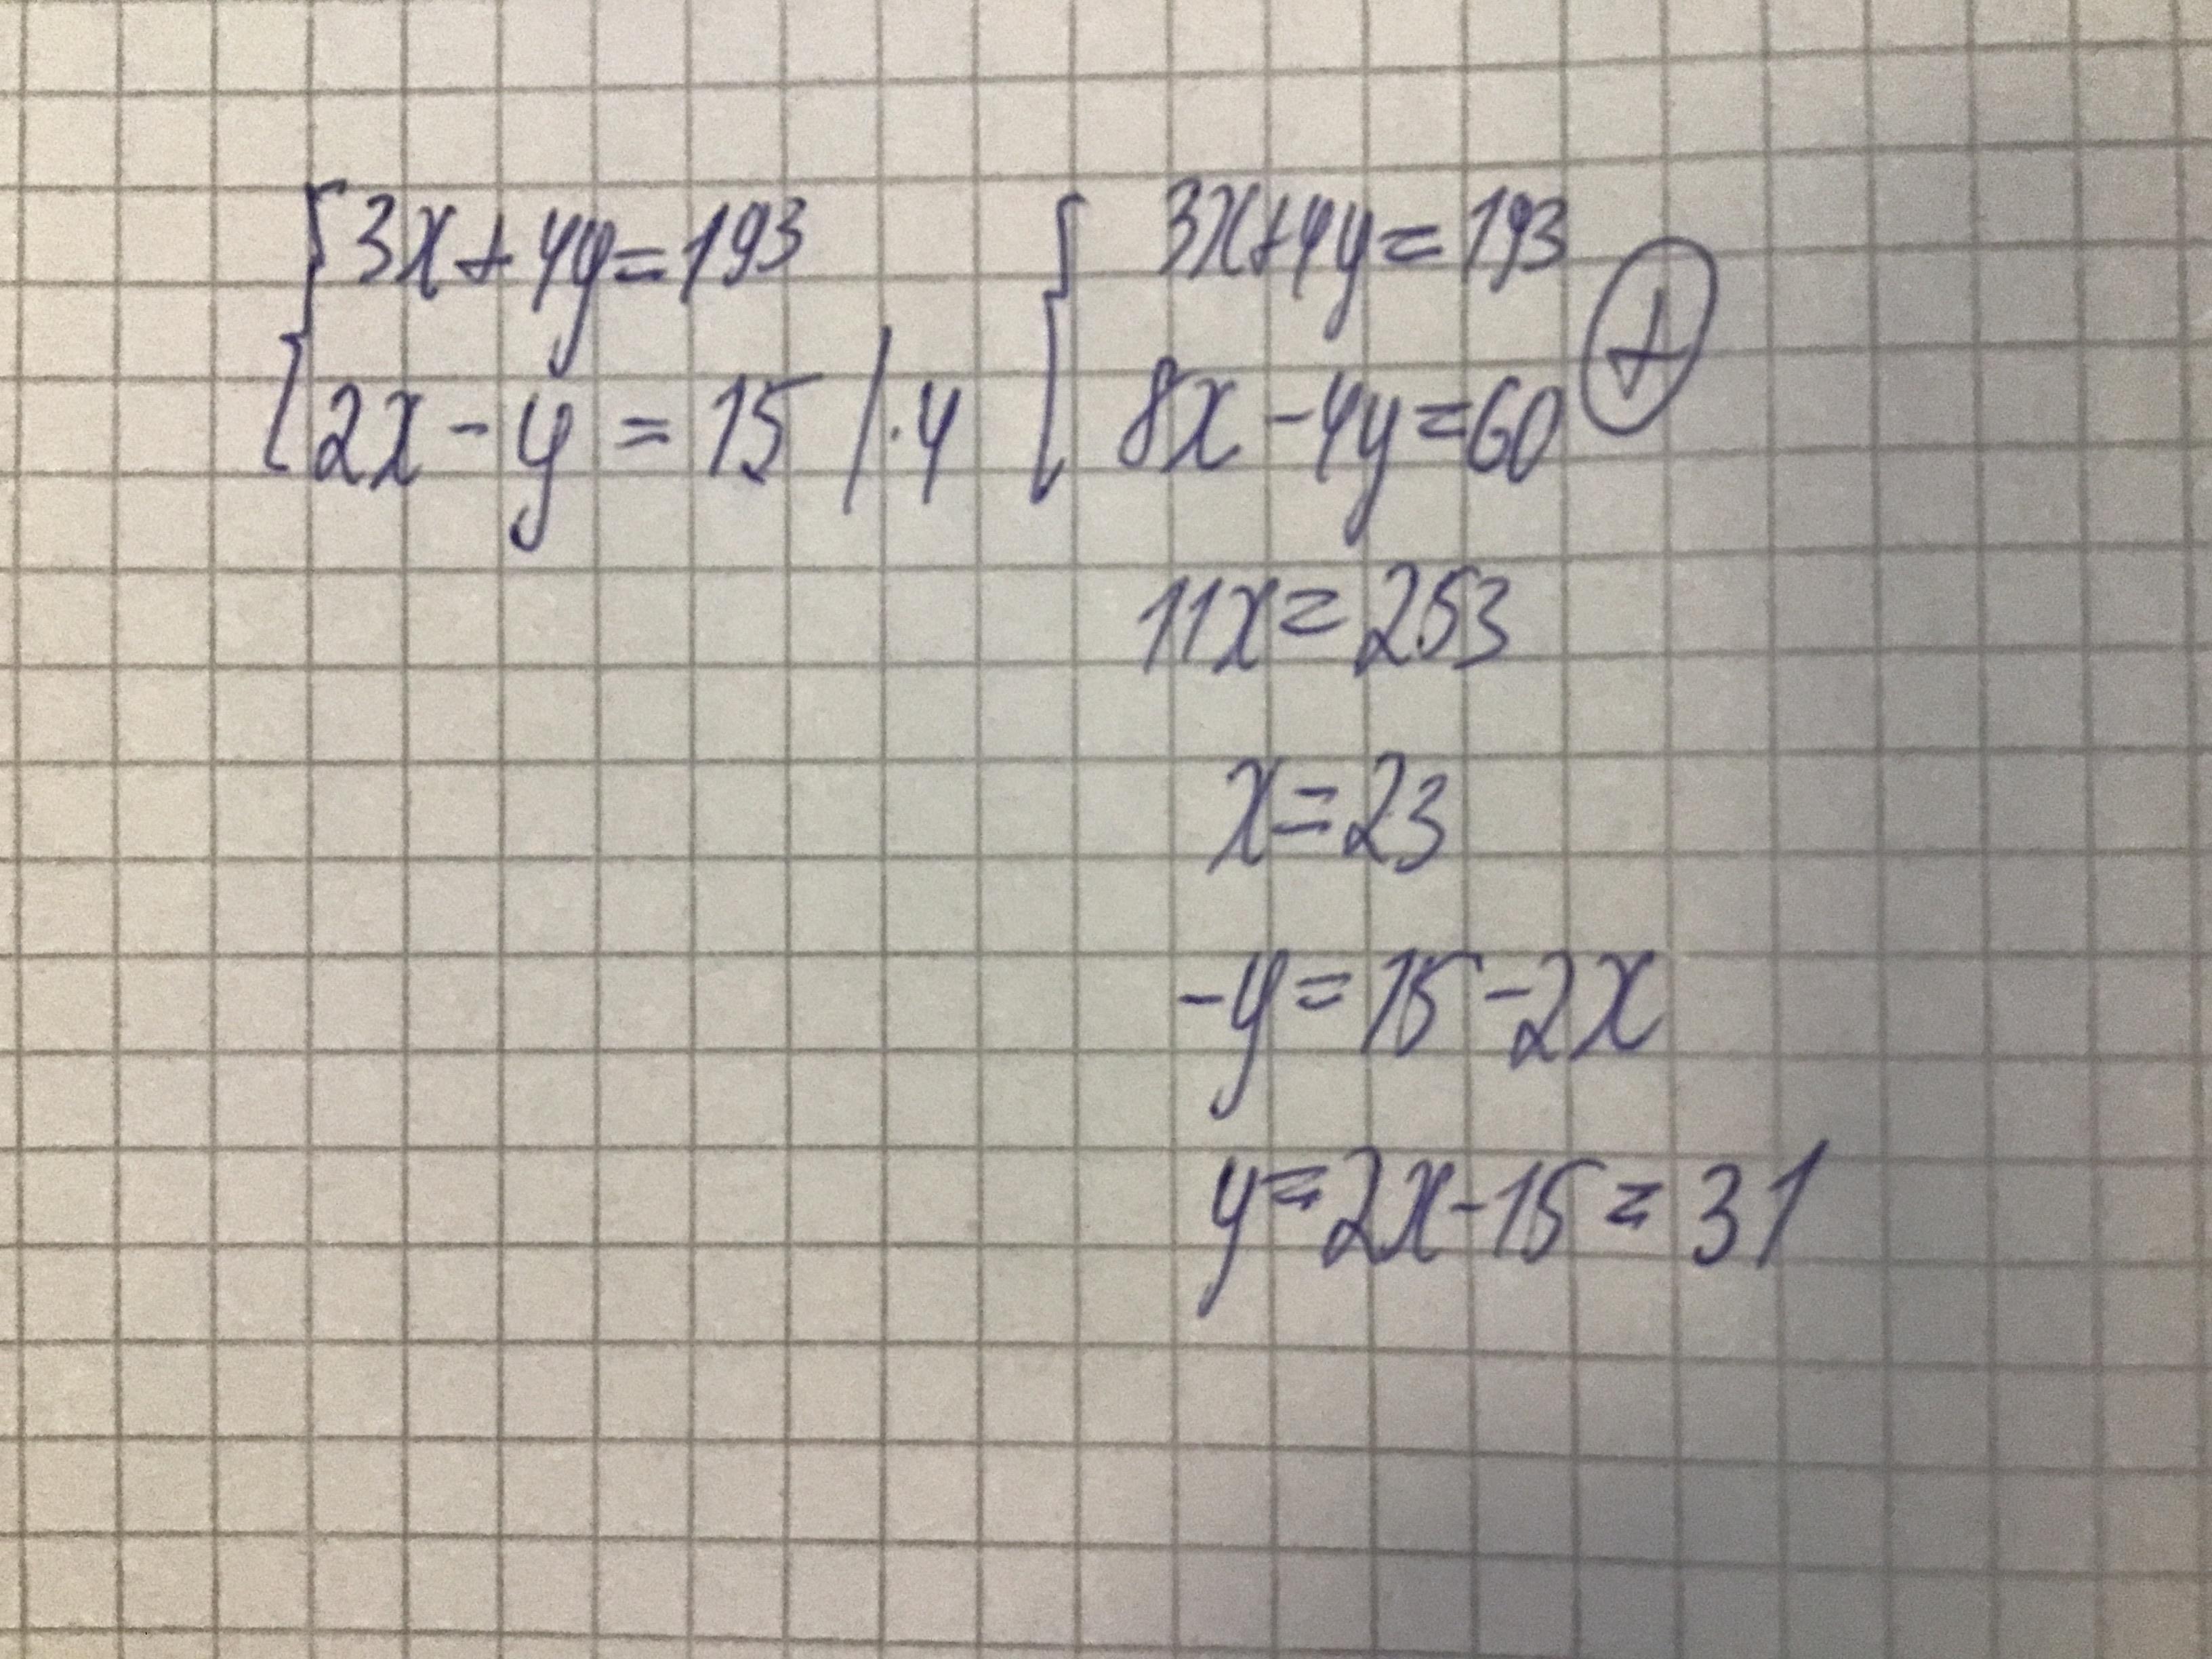 3x+4y=193
2x-y=15 /·4
3x+4y=193
8x-4y=60 ⊕
11x=253
x=23
-y=15-2x
y=2x-15=31